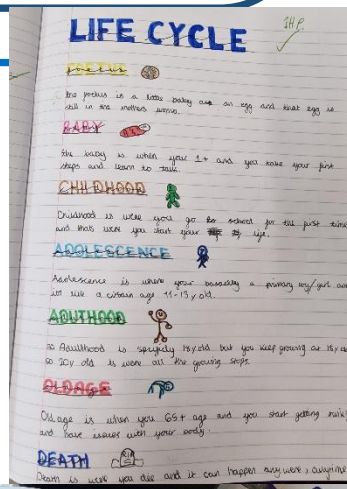 LIFE CYCLE
1HP.
FOETUS
the foetus is a little baby as an egg and that egg is
still in the mothers womb.
BABY
the baby is when your 1+ and you take your first
steps and learn to talk.
CHILDHOOD
Childhood is were you go to school for the first time
and thats were you start your life.
ADOLESCENCE
Adolescence is where your basically a primary boy/girl
its like a citain age 11-13 y old.
ADUTHOOD
so Adulthood is 18y old but you keep growing at 18y
so 20y old is were all the growing stops.
OLDAGE
Old age is when you 65+ age and you start getting
and have issues with your body.
DEATH
Death is were you die and it can happen anywere, anytime